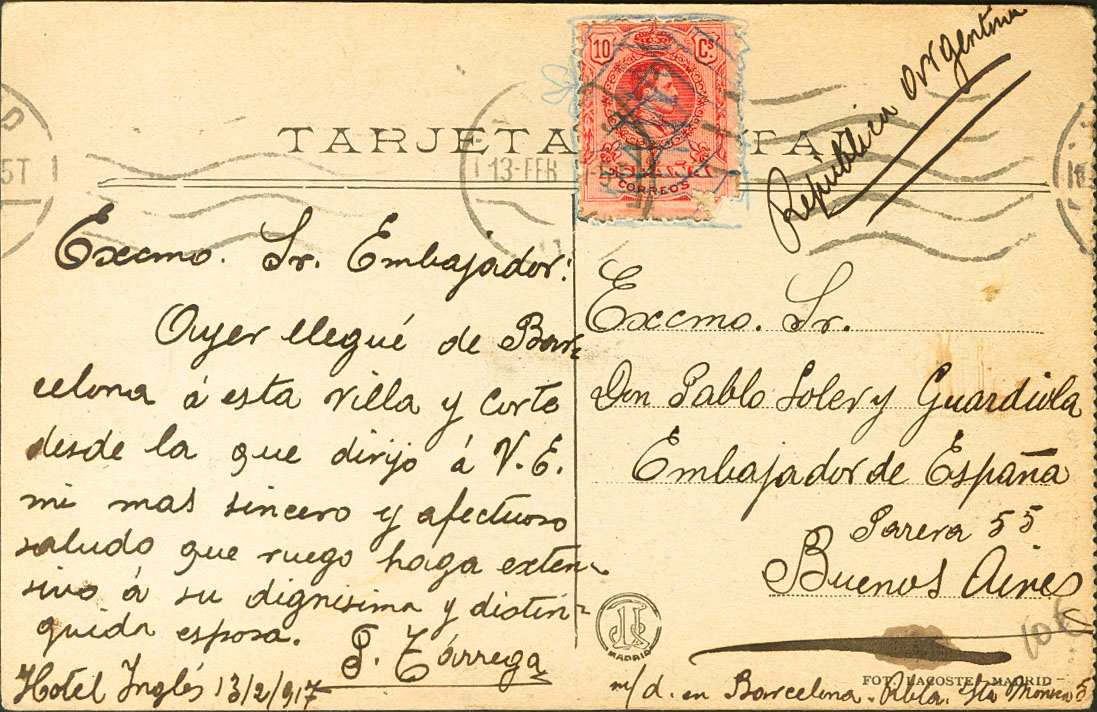 TARJETA
10 Cs
ESPAÑA
CORREOS
13-FEB
5T
República Argentina
Excmo. Sr. Embajador:
Ayer llegué de Bar-
celona á esta villa y Corte
desde la que dirijo á V.E.
mi mas sincero y afectuoso
saludo que ruego haga exten-
sivo á su dignisima y distin-
guida esposa.
P. Tárrega
Hotel Inglés 13/2/917
Excmo. Sr.
Don Pablo Soler y Guardiola
Embajador de España
Parera 55
Buenos Aires
10 €
MADRID
FOT. LACOSTE - MADRID -
m/d. en Barcelona. Rbla. Sta Monica 5